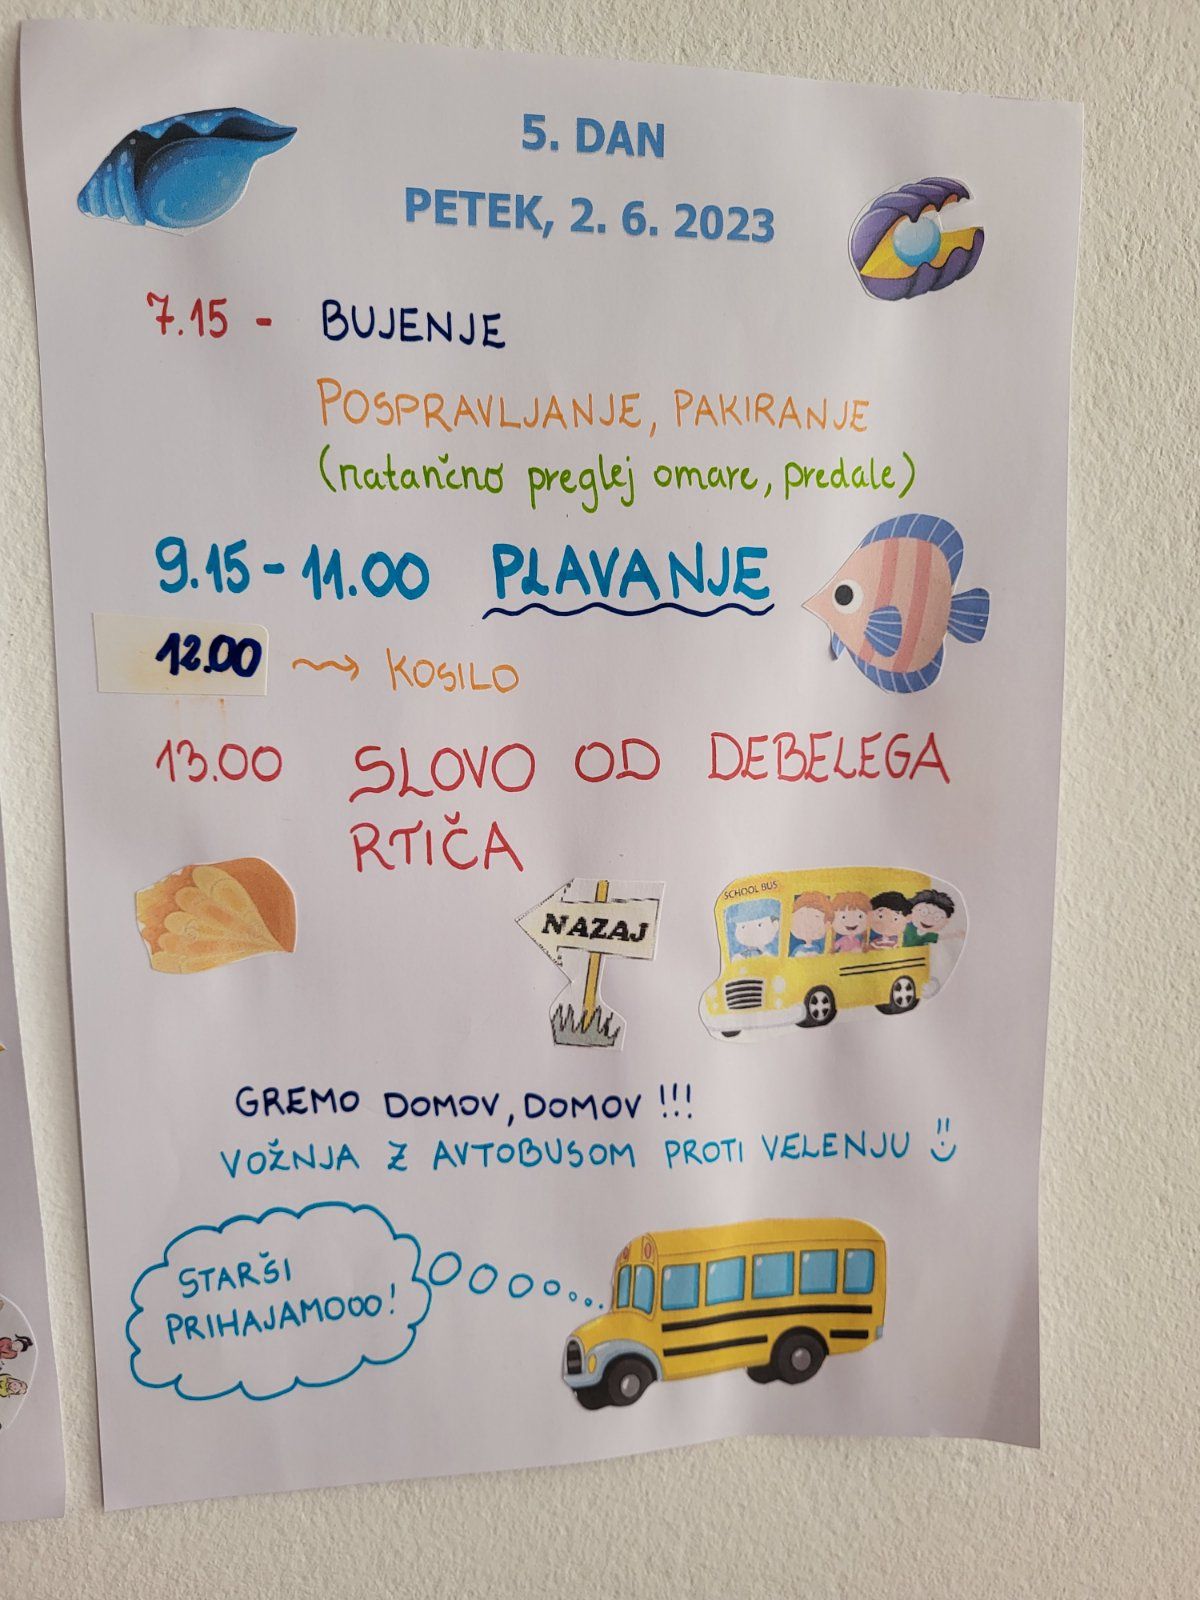 5. DAN
PETEK, 2. 6. 2023
7.15 - BUJENJE
POSPRAVLJANJE, PAKIRANJE
(natančno preglej omare, predale)
9.15 - 11.00 PLAVANJE
12.00 → KOSILO
13.00 SLOVO OD DEBELEGA
RTIČA
SCHOOL BUS
NAZAJ
GREMO DOMOV, DOMOV !!!
VOŽNJA Z AVTOBUSOM PROTI VELENJU
STARŠI
PRIHAJAMOOO!